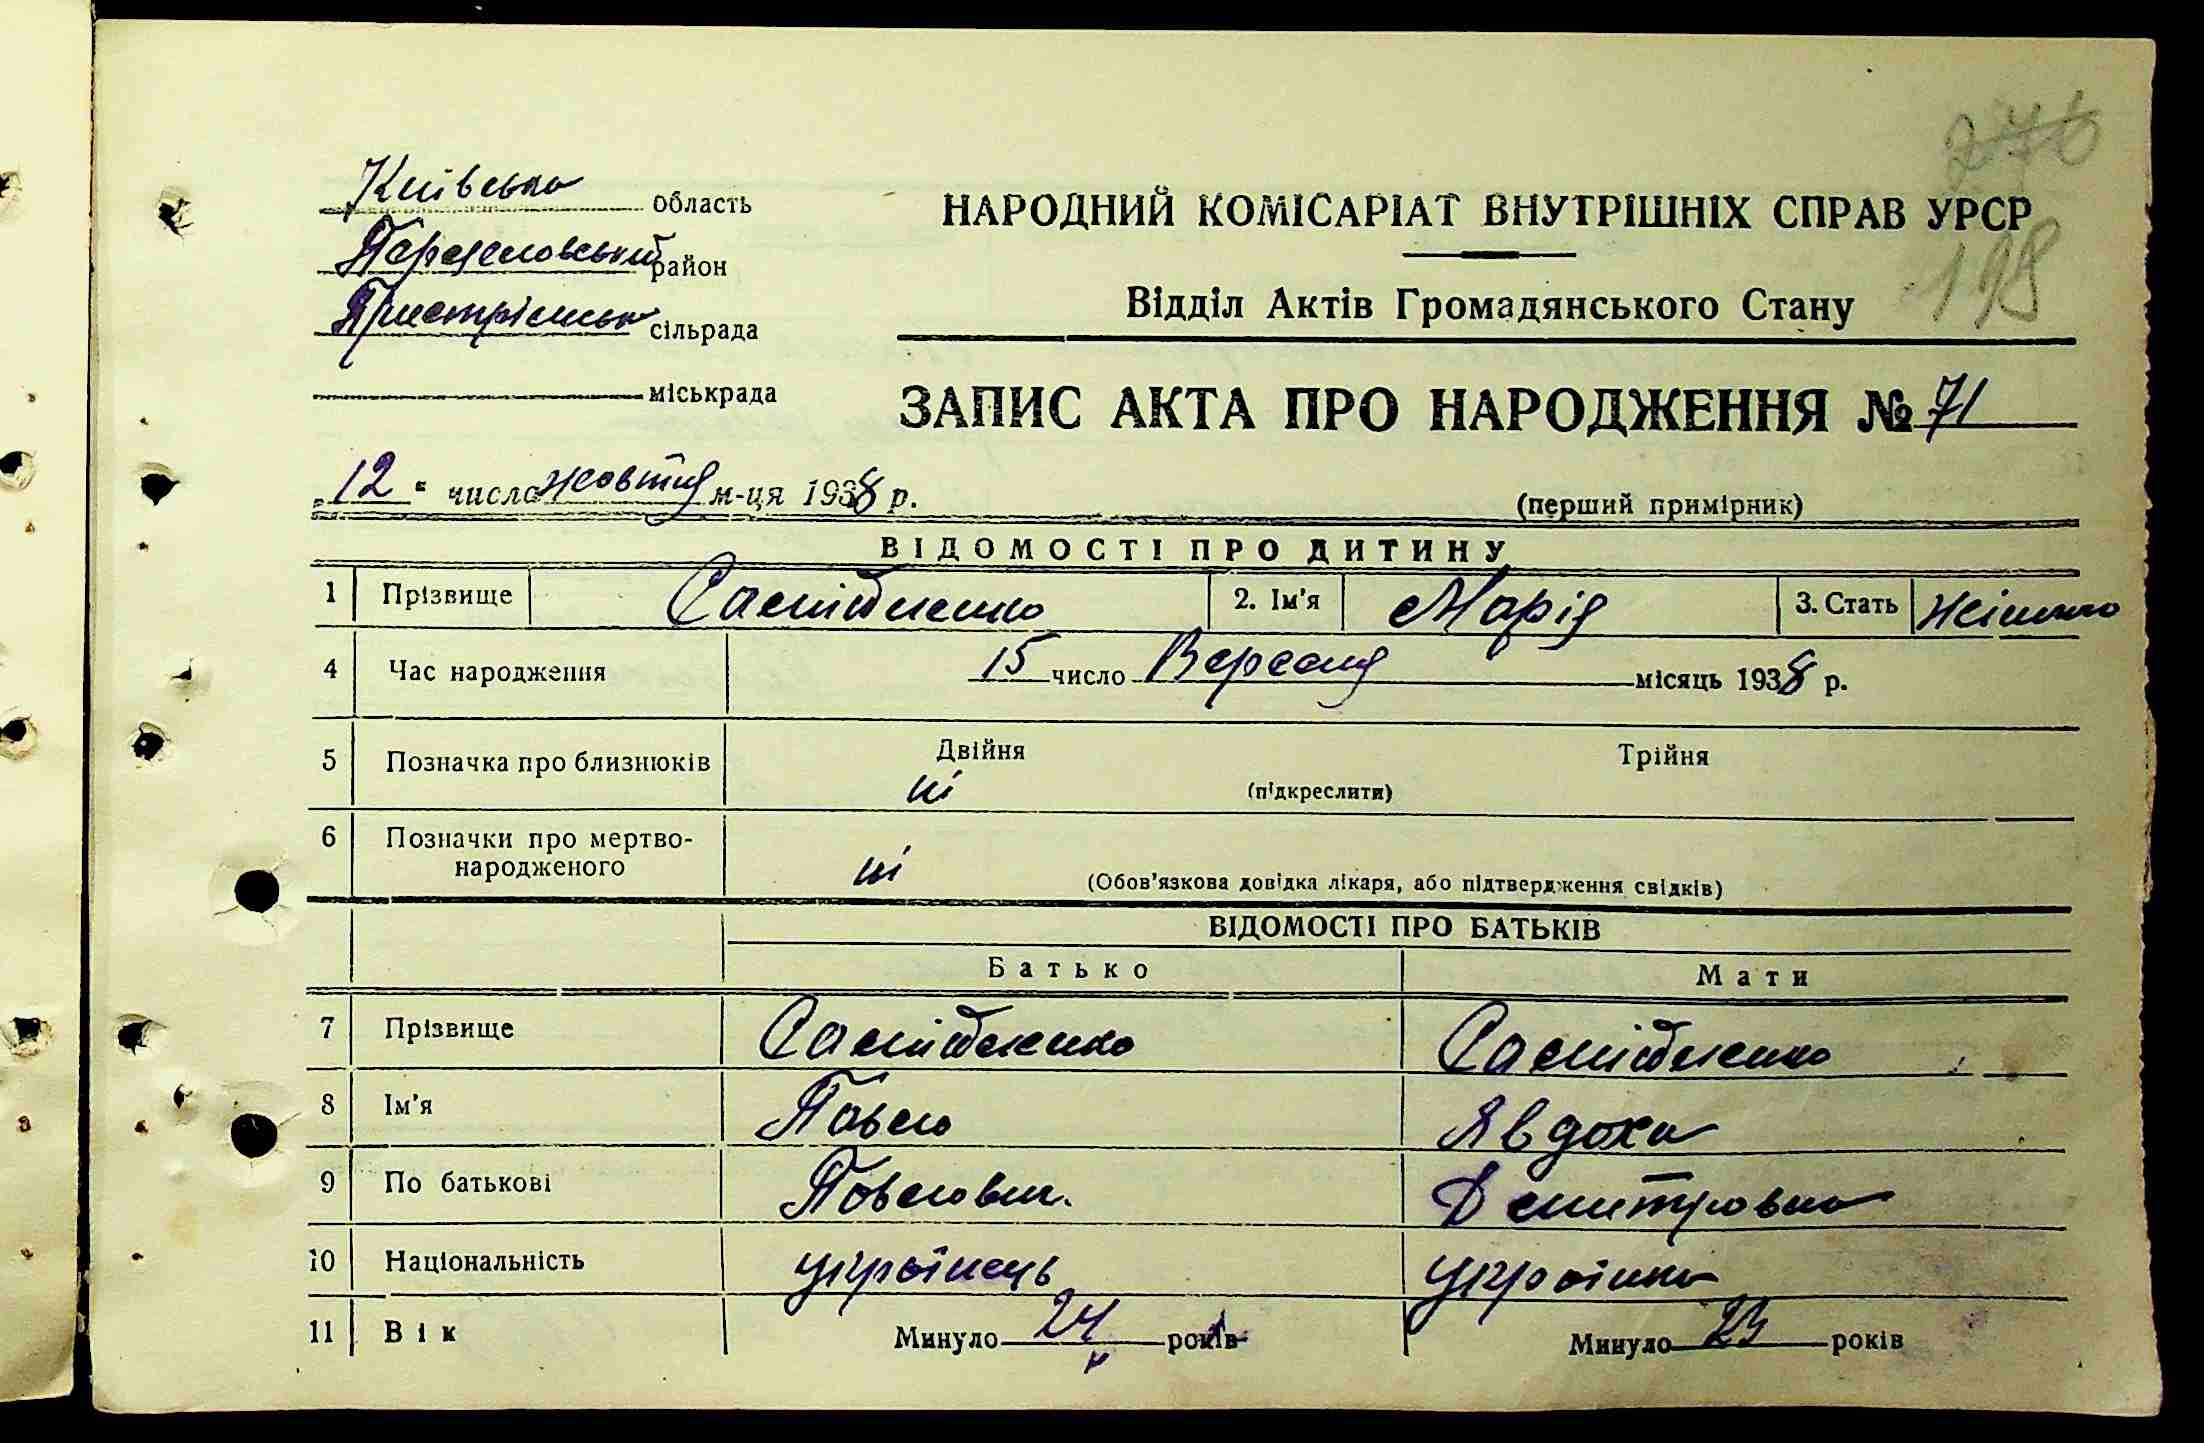 276
198
Київська область
НАРОДНИЙ КОМІСАРІАТ ВНУТРІШНІХ СПРАВ УРСР
район
Відділ Актів Громадянського Стану
сільрада
міськрада
ЗАПИС АКТА ПРО НАРОДЖЕННЯ № 71
„12" число жовтня м-ця 1938 р.
(перший примірник)
ВІДОМОСТІ ПРО ДИТИНУ
1 Прізвище 2. Ім'я Марія 3. Стать
4 Час народження 15 число Вересня місяць 1938 р.
5 Позначка про близнюків Двійня Трійня
ні (підкреслити)
6 Позначки про мертво-
народженого ні (Обов'язкова довідка лікаря, або підтвердження свідків)
ВІДОМОСТІ ПРО БАТЬКІВ
Батько Мати
7 Прізвище
8 Ім'я Павло Явдоха
9 По батькові Павлович. Дмитровна
10 Національність українець українка
11 Вік Минуло 24 років Минуло 23 років